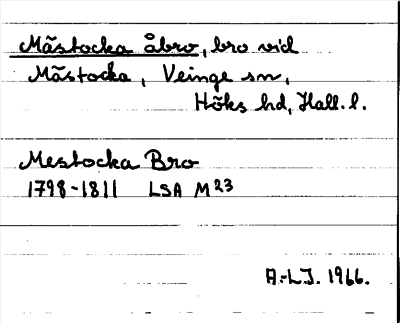 Mästocka åbro, bro vid
Mästocka, Veinge sn,
Höks hd, Hall. l.
Mestocka Bro
1798-1811 LSA M23
A.-L.J. 1966.